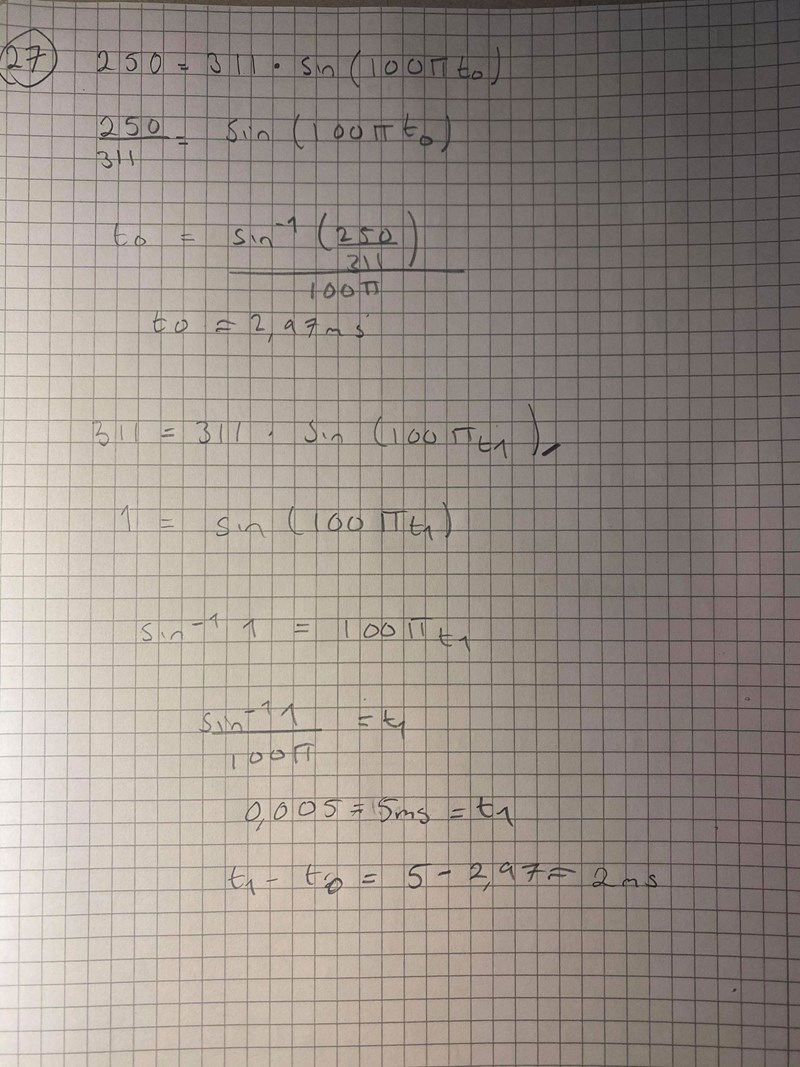 27 250 = 311 · sin (100π t₀)
250/311 = sin (100π t₀)
t₀ = sin⁻¹ (250/311) / 100π
t₀ = 2,97ms
311 = 311 · sin (100π t₁)
1 = sin (100π t₁)
sin⁻¹ 1 = 100π t₁
sin⁻¹ 1 / 100π = t₁
0,005 = 5ms = t₁
t₁ - t₀ = 5 - 2,97 = 2ms